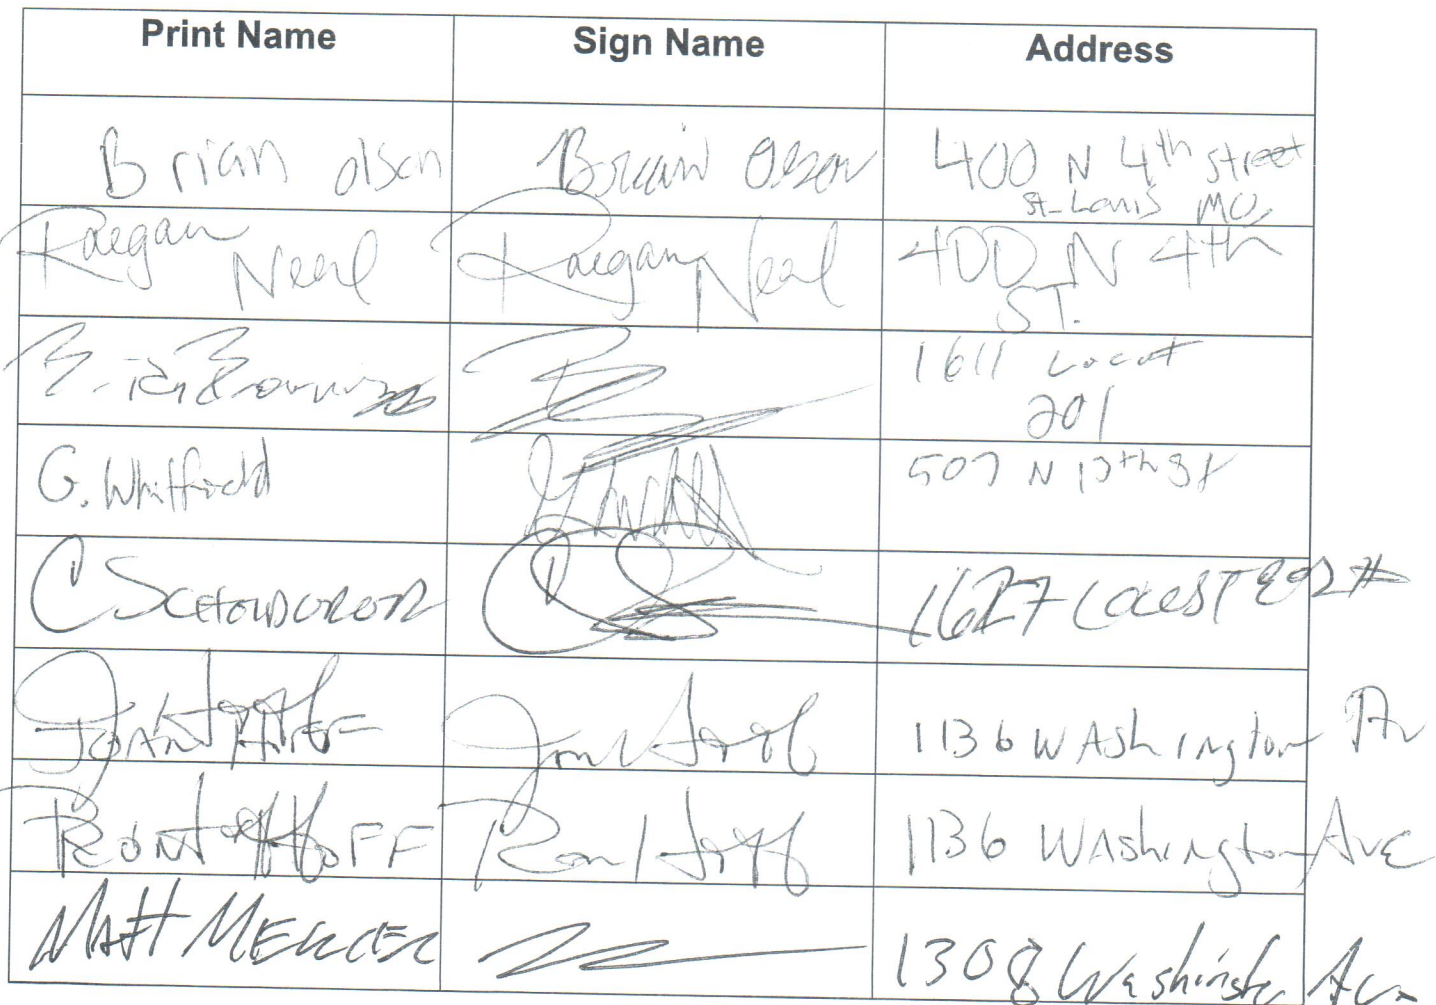 Print Name Sign Name Address
Brian Olson Brian Olson 400 N 4th Street
St. Louis MO
Raegan Neal Raegan Neal 400 N 4th
ST.
1611 Locust
201
G. Whitfield 507 N 13th St
C 1627 Locust
Joan Hoff Joan Hoff 1136 Washington Av
Ron Hoff Ron Hoff 1136 Washington Ave
Matt Mercer 1308 Washington Ave